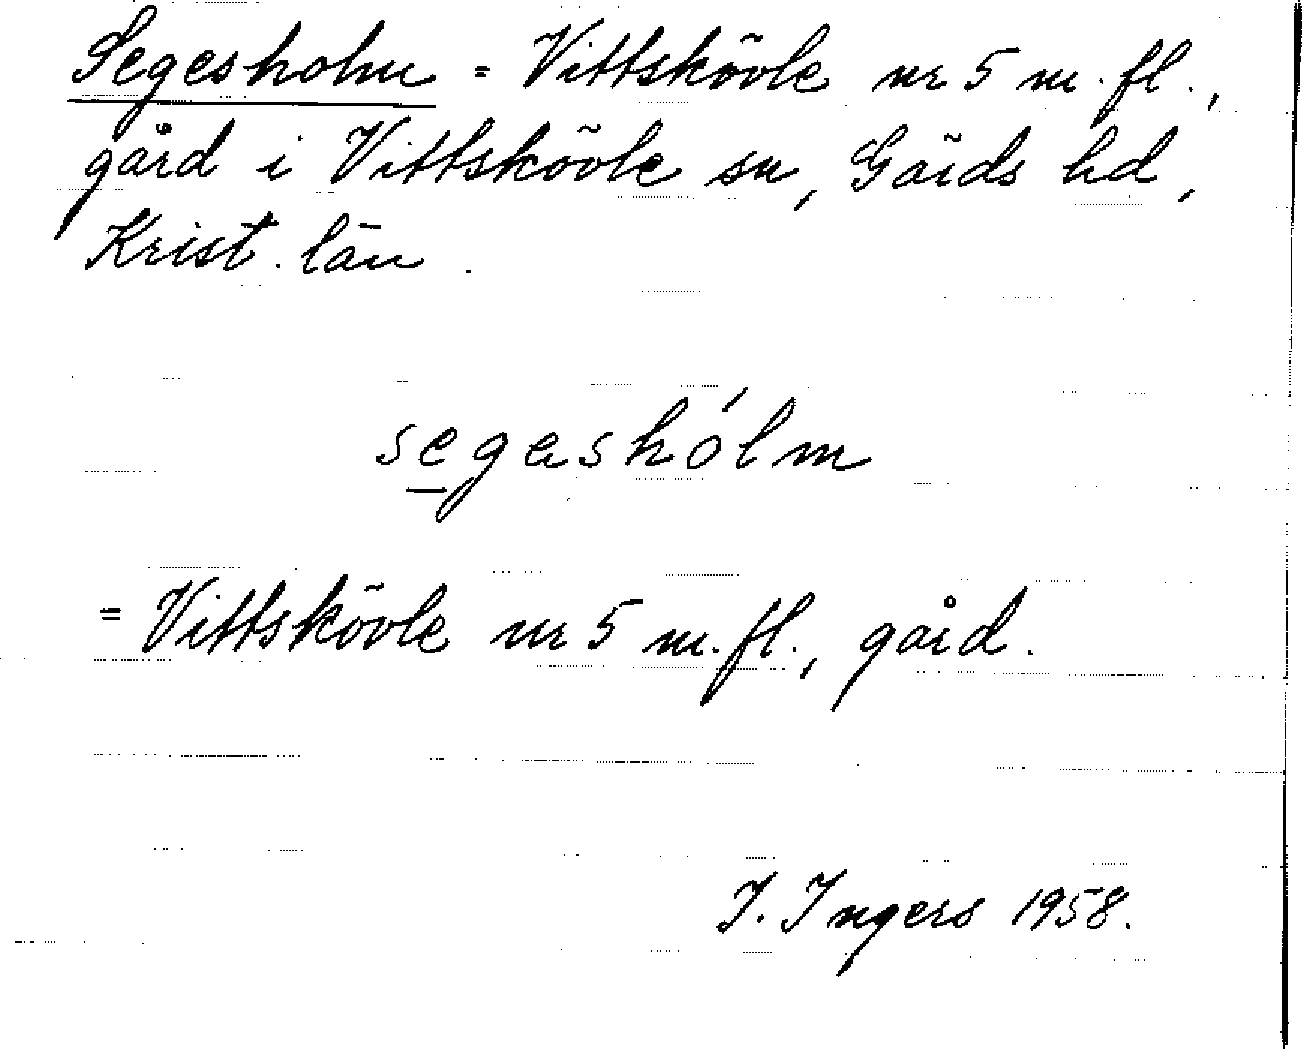 Segesholm = Vittskövle nr 5 m.fl.,
gård i Vittskövle sn, Gärds hd,
Krist. län.
segəshólm
= Vittskövle nr 5 m.fl., gård.
I. Ingers 1958.